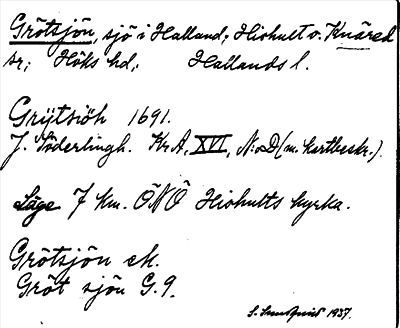 Grötsjön, sjö i Halland; Hishult o. Knäred
sr; Höks hd; Hallands l.
Grijtsiöh 1691.
J. Söderlingh. Kr.A. XVI, N:o D (m. kartbeskr.).
Läge 7 km. ÖNÖ Hishults kyrka.
Grötsjön ek.
Gröt sjön G. 9.
S. Sundquist 1937.